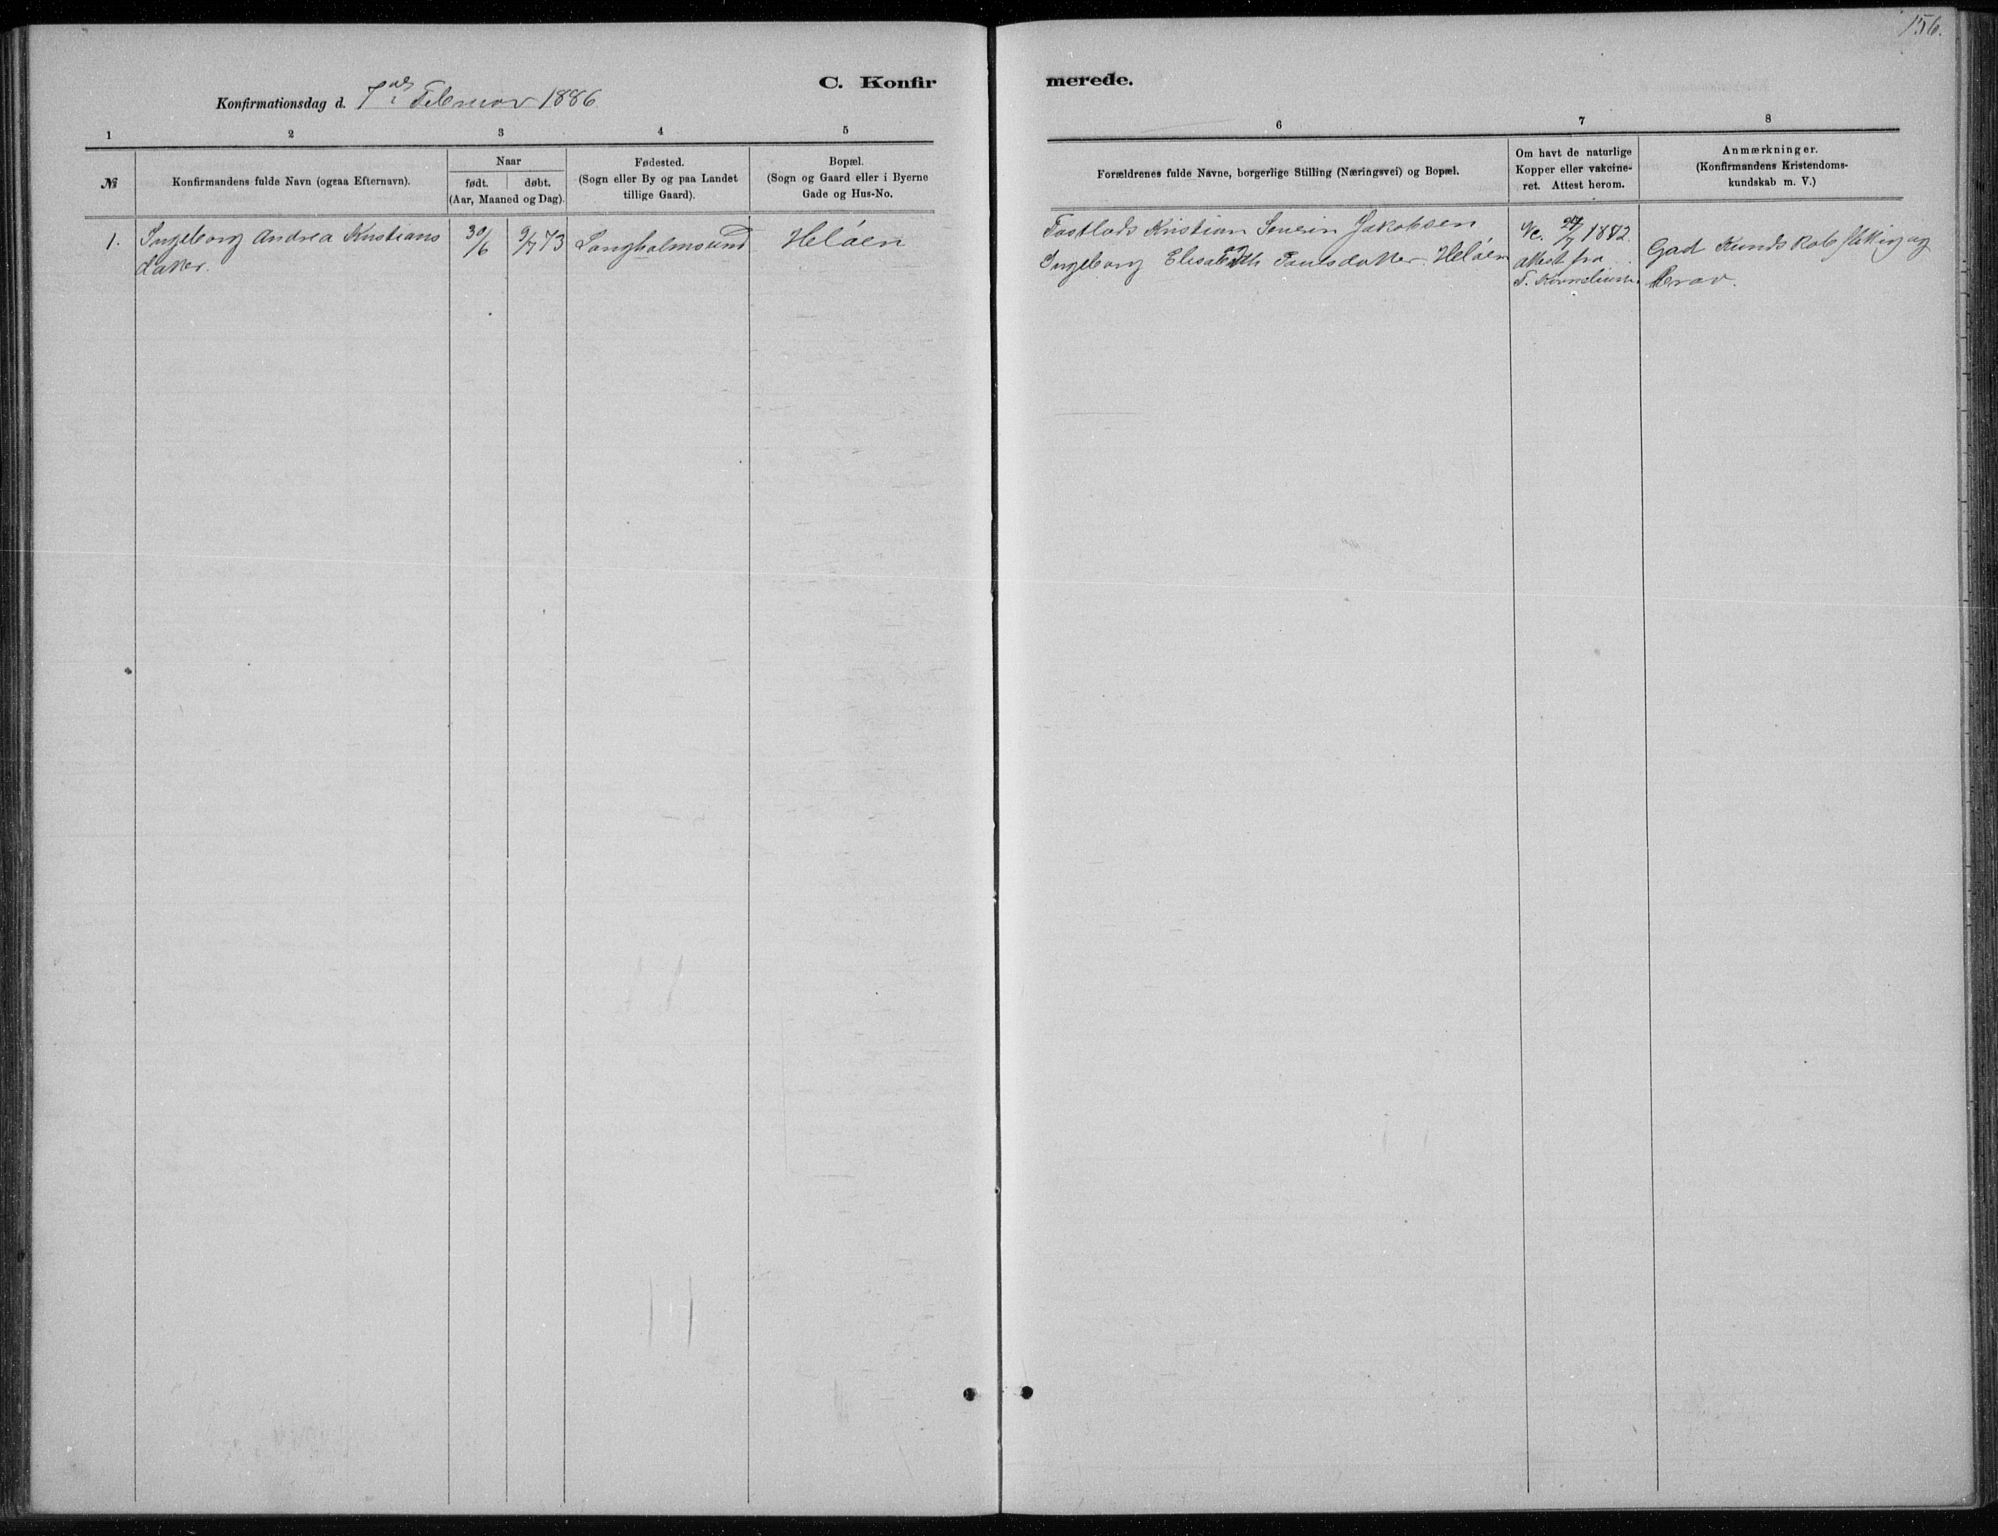 156.
C. Konfirmerede.
Konfirmationsdag d. 7de Februar 1886
1 2 3 4 5 6 7 8
№
Konfirmandens fulde Navn (ogsaa Efternavn).
Naar
født. døbt.
(Aar, Maaned og Dag).
Fødested.
(Sogn eller By og paa Landet
tillige Gaard).
Bopæl.
(Sogn og Gaard eller i Byerne
Gade og Hus-No.
Forældrenes fulde Navne, borgerlige Stilling (Næringsvei) og Bopæl.
Om havt de naturlige
Kopper eller vakcine-
ret. Attest herom.
Anmærkninger.
(Konfirmandens Kristendoms-
kundskab m. V.)
1. Ingeborg Andrea Kristians
datter.
30/6
9/7 73
Langholmsund
Heløen
Kristian Severin Jakobsen
Ingeborg Elisabeth Paulsdatter. Heløen
Vc. 27/7 1882.
Attest fra
T. Kornelius
God Kundskab, flittig og
brav.